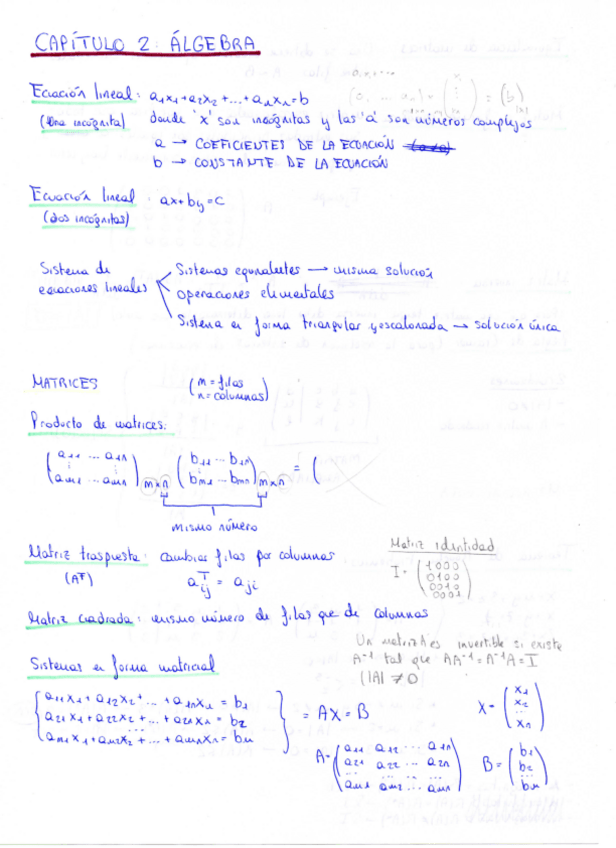 CAPÍTULO 2: ÁLGEBRA
Ecuación lineal: a₁x₁+a₂x₂+...+aₙxₙ=b
(Una incógnita) donde 'x' son incógnitas y las 'a' son números complejos
a → COEFICIENTES DE LA ECUACIÓN
b → CONSTANTE DE LA ECUACIÓN
Ecuación lineal: ax+by=c
(dos incógnitas)
Sistema de ecuaciones lineales
Sistemas equivalentes → misma solución
Operaciones elementales
Sistema en forma triangular y escalonada → solución única
MATRICES (m=filas
n=columnas)
Producto de matrices:
(a₁₁ ... a₁ₙ) (b₁₁ ... b₁ₙ)
(aₘ₁ ... aₘₙ) m×n (bₘ₁ ... bₘₙ) m×n = (
mismo número
Matriz traspuesta: cambiar filas por columnas
(Aᵀ) aᵀᵢⱼ = aⱼᵢ
Matriz identidad
I = (1000
0100
0010
0001)
Matriz cuadrada: mismo número de filas que de columnas
Un matriz A es invertible si existe
A⁻¹ tal que AA⁻¹=A⁻¹A=I
(|A| ≠ 0
Sistemas en forma matricial
a₁₁x₁+a₁₂x₂+...+a₁ₙxₙ=b₁
a₂₁x₁+a₂₂x₂+...+a₂ₙxₙ=b₂
aₘ₁x₁+aₘ₂x₂+...+aₘₙxₙ=bₘ
= AX=B
X=(x₁
x₂
...
xₙ)
A=(a₁₁ a₁₂ ... a₁ₙ
a₂₁ a₂₂ ... a₂ₙ
...
aₘ₁ aₘ₂ ... aₘₙ)
B=(b₁
b₂
...
bₘ)